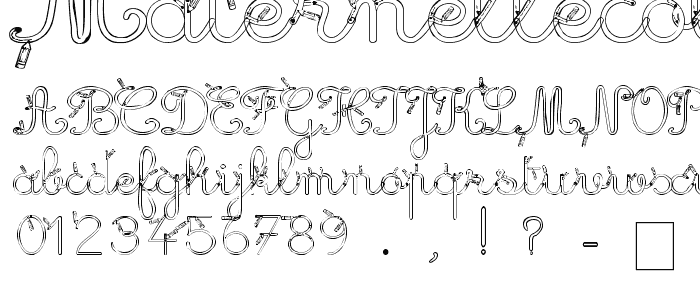 Maternellecol
ABCDEFGHIJKLMNOP
abcdefghijklmnopqrstuvwx
0123456789 . , ! ? -